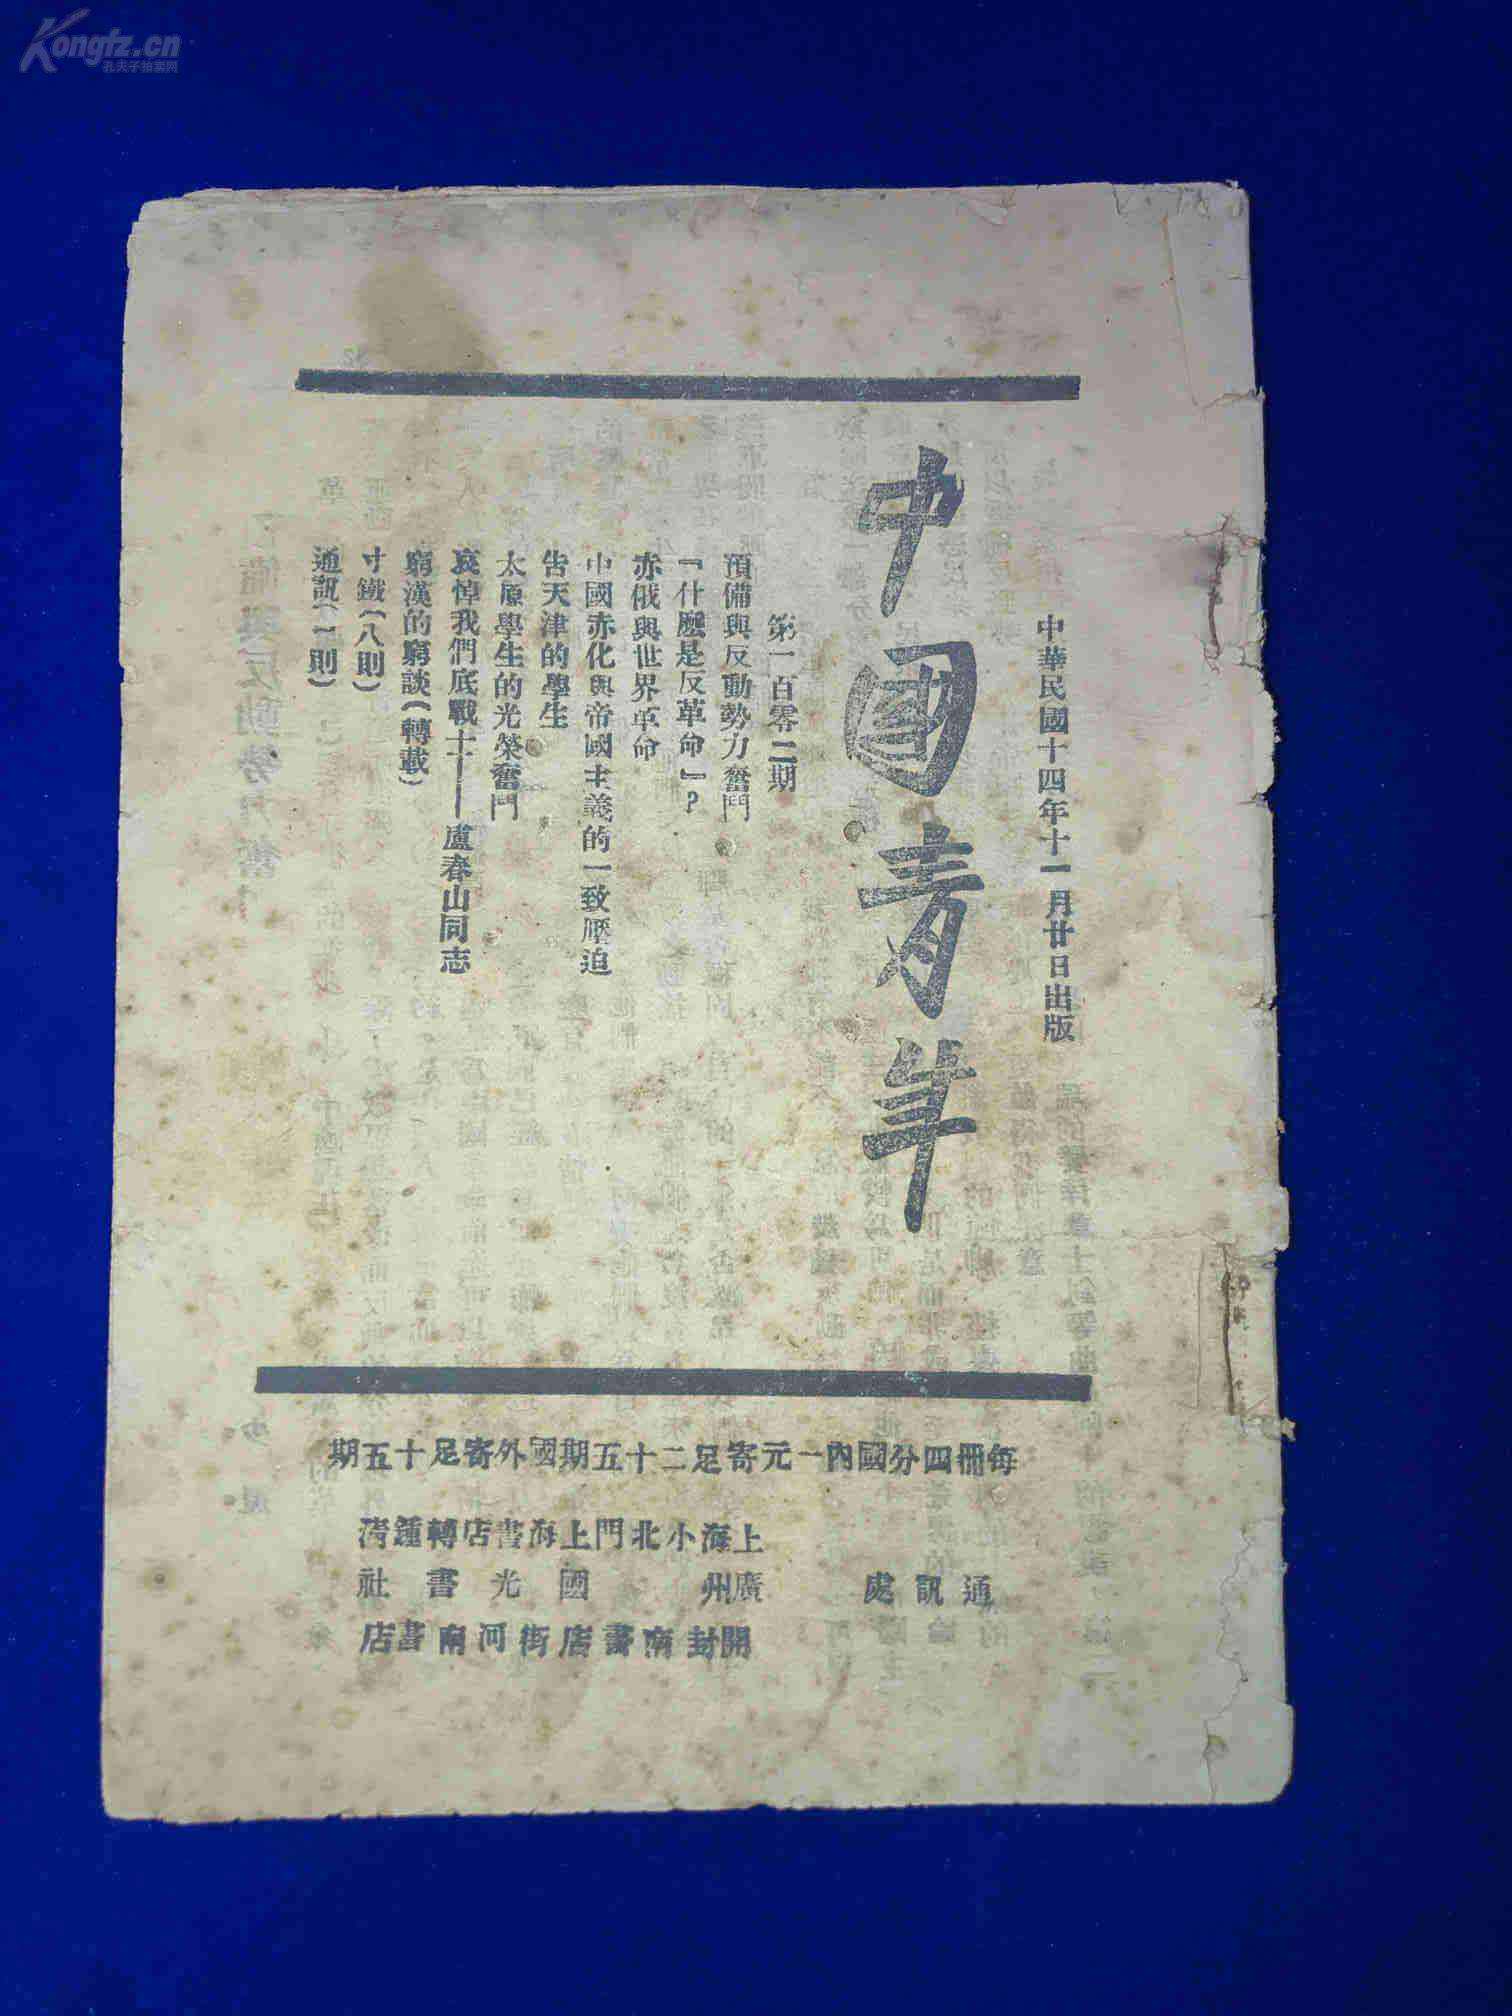 Kongfz.cn
孔夫子拍卖网
中華民國十四年十一月廿日出版
中國青年
第一百零二期
預備與反動勢力奮鬥
『什麽是反革命』？
赤俄與世界革命
中國赤化與帝國主義的一致壓迫
告天津的學生
太原學生的光榮奮鬥
哀悼我們底戰士——盧春山同志
窮漢的窮談(轉載)
寸鐵(八則)
通訊(一則)
每冊四分國內一元寄足二十五期國外寄足十五期
通訊處
上海小北門上海書店轉鍾清
廣州國光書社
開封南書店街河南書店